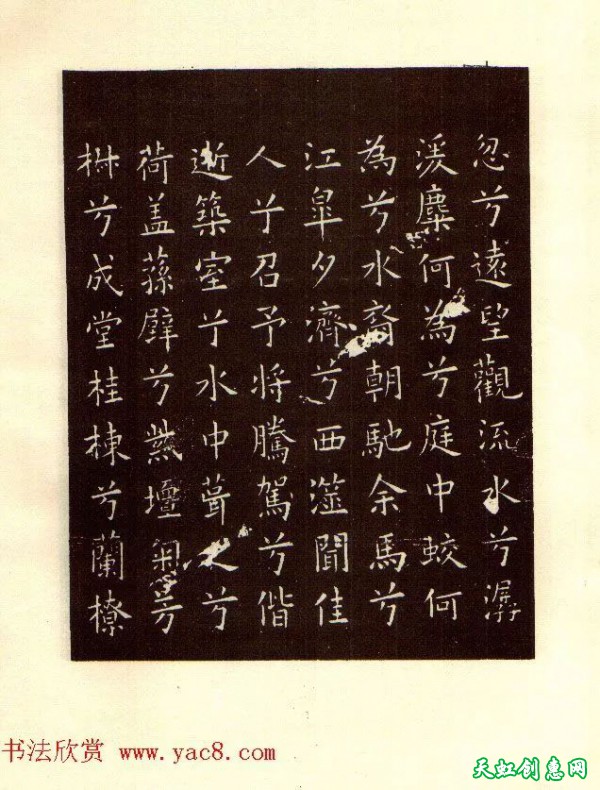 忽兮遠望觀流水兮潺
湲麋何為兮庭中蛟何
為兮水裔朝馳余馬兮
江皐夕濟兮西澨聞佳
人兮召予将騰駕兮偕
逝築室兮水中葺之兮
荷盖蓀壁兮紫壇芳
椒兮成堂桂棟兮蘭橑
书法欣赏 www.yac8.com
天虹创惠网